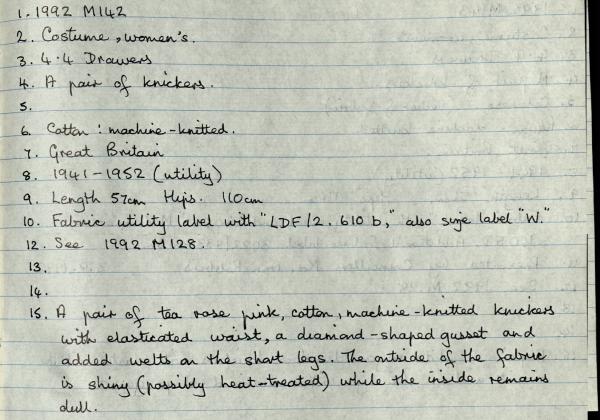 1. 1992 M142
2. Costume, women's.
3. 4.4 Drawers
4. A pair of knickers.
5.
6. Cotton: machine-knitted.
7. Great Britain
8. 1941-1952 (utility)
9. Length 57cm Hips. 110cm
10. Fabric utility label with "LDF/2. 610 b," also size label "W."
12. See 1992 M128.
13.
14.
15. A pair of tea rose pink, cotton, machine-knitted knickers
with elasticated waist, a diamond-shaped gusset and
added welts on the short legs. The outside of the fabric
is shiny (possibly heat-treated) while the inside remains
dull.